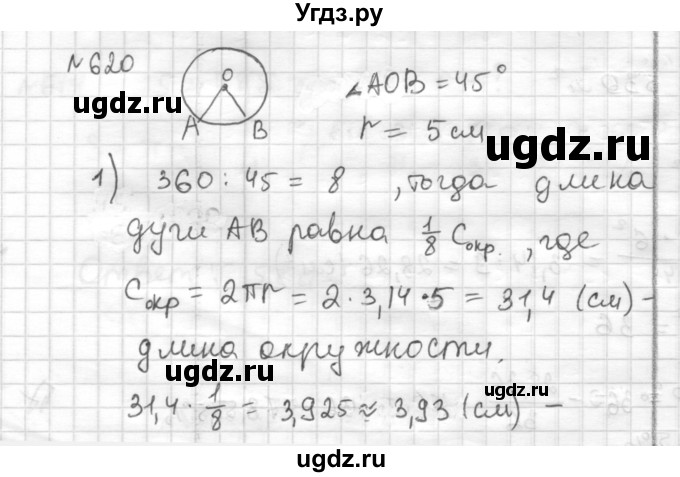 Угдз.ру
№620
O
A B
∠AOB = 45°
r = 5 см
ugdz.ru
ugdz.ru
1) 360 : 45 = 8 , тогда длина
дуги AB равна 1/8 Cокр. , где
Cокр = 2πr = 2 · 3,14 · 5 = 31,4 (см) –
длина окружности.
ugdz.ru
31,4 · 1/8 = 3,925 ≈ 3,93 (см) –
ugdz.ru
ugdz.ru